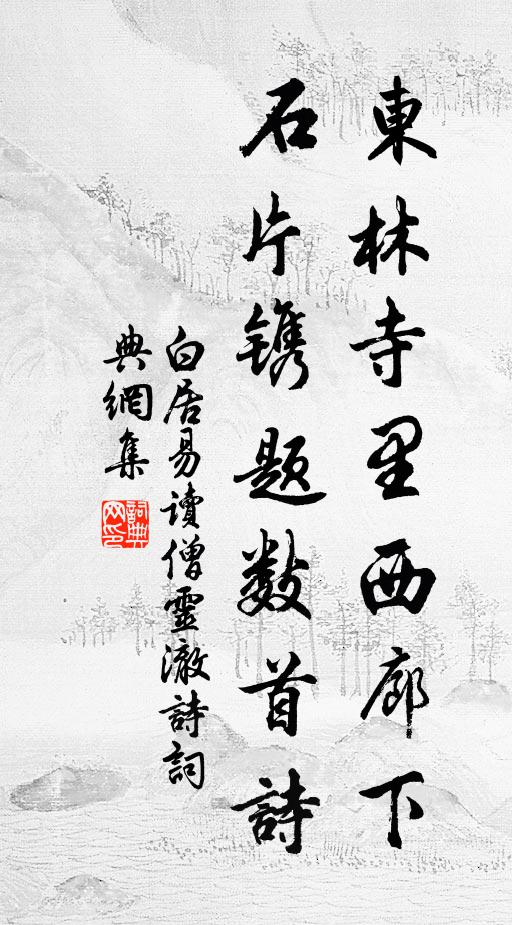 東林寺里西廊下
石片镌题数首詩
白居易读僧靈澈詩詞
典網集
詞典
网印